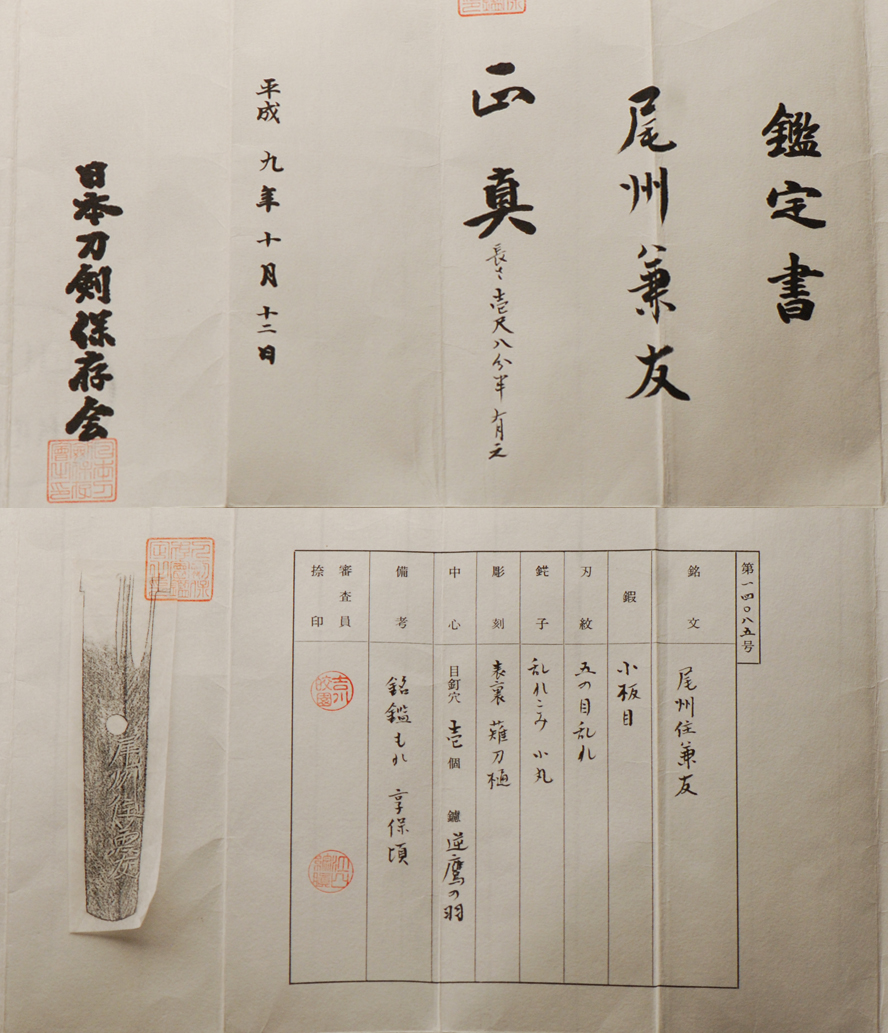 鑑定書
尾州兼友
正真
長さ壱尺八分半有之
平成九年十月十二日
日本刀剣保存会
第一四〇八五号
銘文
尾州住兼友
鍜
小板目
刃紋
五の目乱れ
鋩子
乱れこみ 小丸
彫刻
表裏 薙刀樋
中心
目釘穴 壱個 鑢 逆鷹の羽
備考
銘鑑もれ 享保頃
審査員
捺印
尾州住兼友